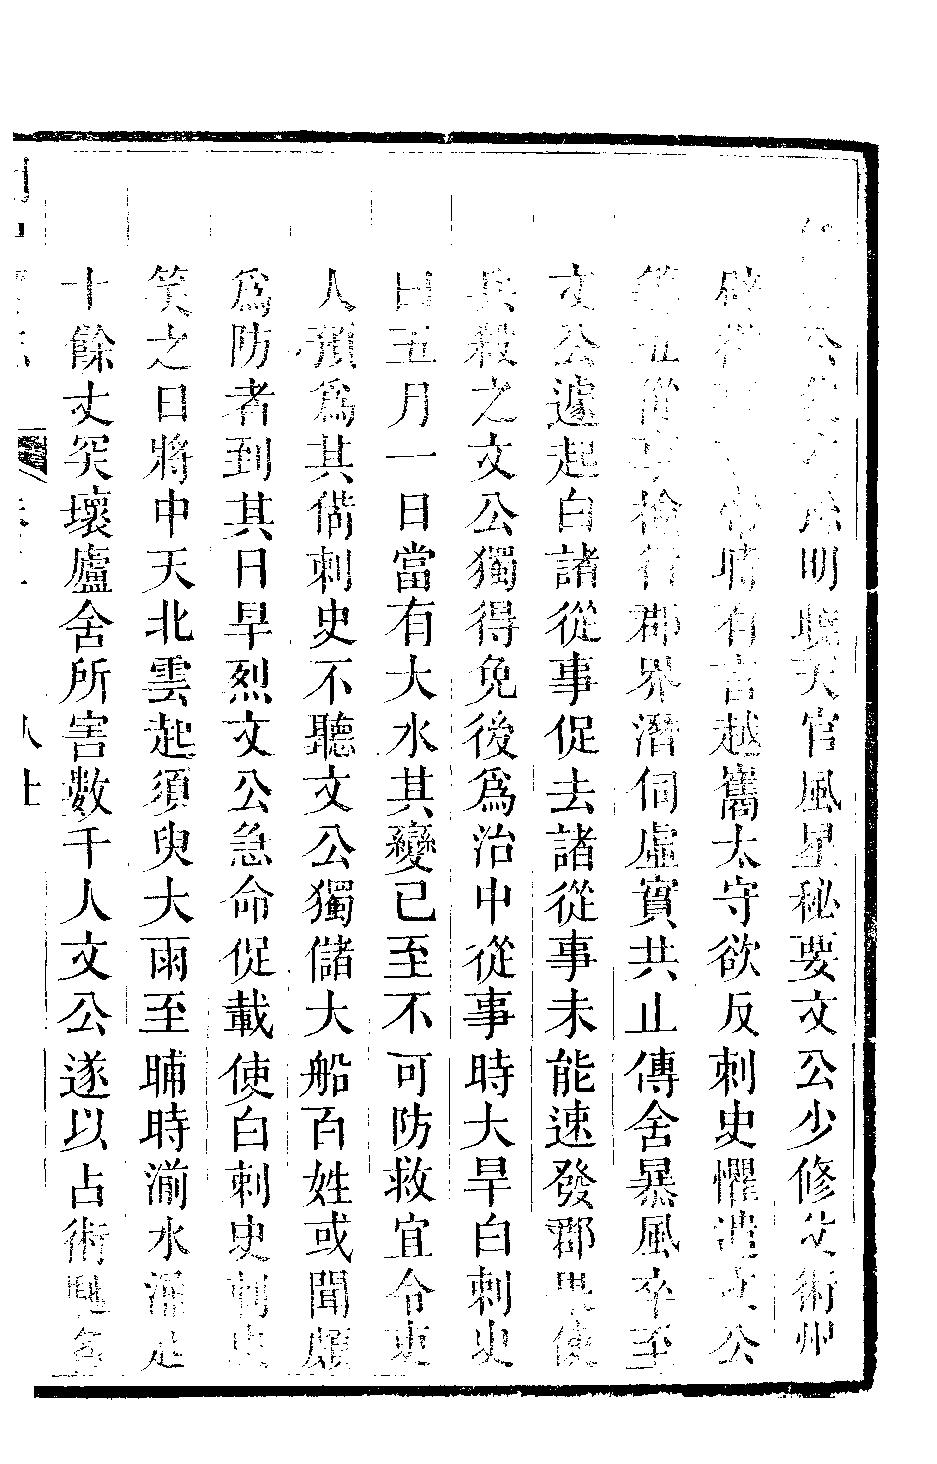 明曉天官風星秘要文公少修父術州
辟從常聘有言越嶲太守欲反刺史懼遣文公
等五從事檢行郡界潛伺虛實共止傳舍暴風卒至
文公遽起白諸從事促去諸從事未能速發郡果使
兵殺之文公獨得免後爲治中從事時大旱白刺史
曰五月一日當有大水其變已至不可防救宜令吏
人預爲其備刺史不聽文公獨儲大船百姓或聞頗
爲防者到其日旱烈文公急命促載使白刺史刺史
笑之日將中天北雲起須臾大雨至晡時湔水湧起
十餘丈突壞廬舍所害數千人文公遂以占術馳名
人士